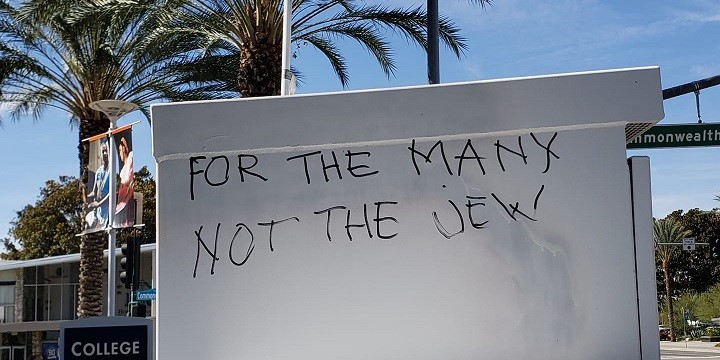 FOR THE MANY
NOT THE JEW
mmonwealth
Common
COLLEGE